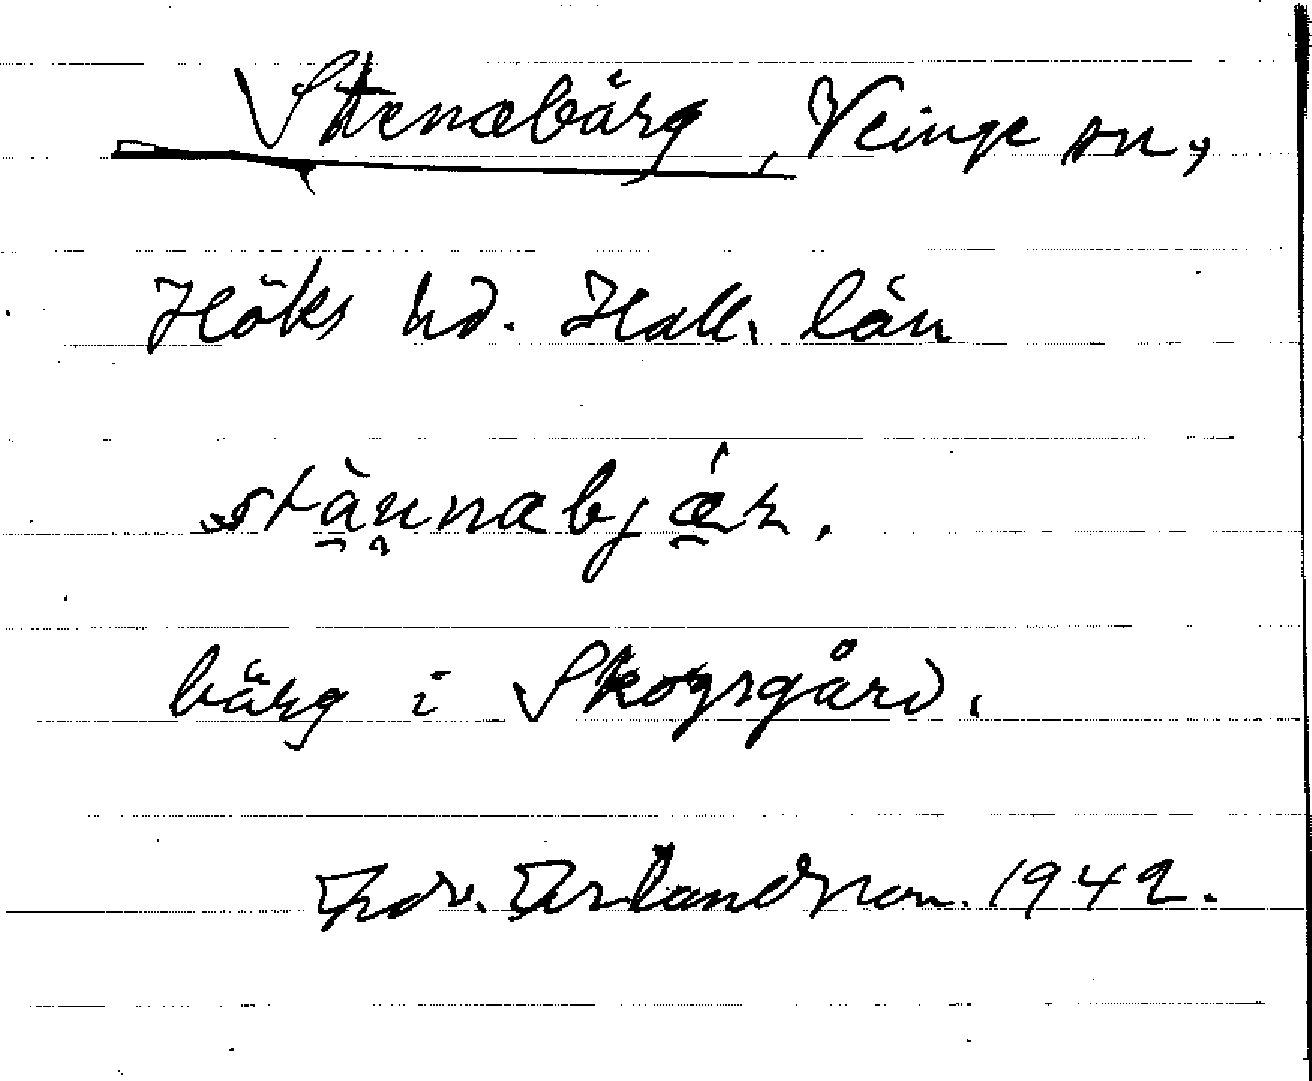 Stenabärg, Veinge sn,
Höks hd. Hall. län
stännabjær.
bärg i Skogsgård.
Edv. Erlandsson. 1942.